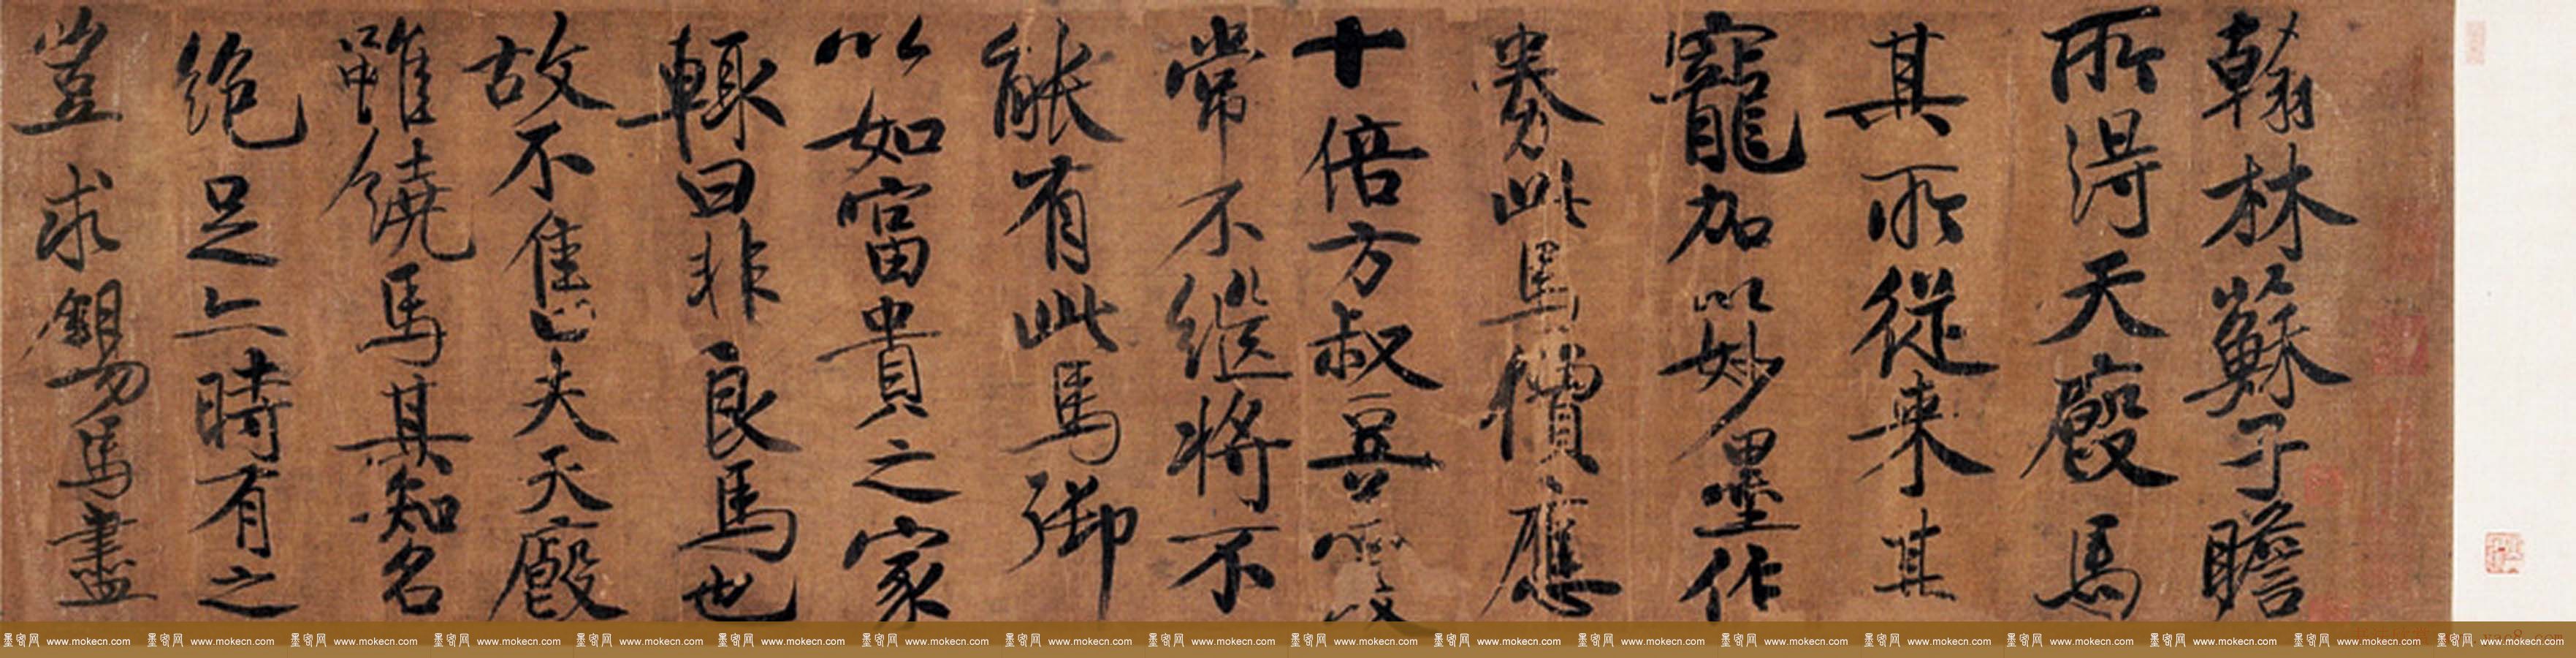 翰林蘇子瞻
所得天廄馬
其所從來甚
寵加以妙墨作
券此馬價應
十倍方叔豆羹
常不繼將不
能有此馬御
以如富貴之家
輒曰非良馬也
故不售夫天廄
雖饒馬其知名
絕足亦時有之
豈求錫馬盡
墨客网 www.mokecn.com 墨客网 www.mokecn.com 墨客网 www.mokecn.com 墨客网 www.mokecn.com 墨客网 www.mokecn.com 墨客网 www.mokecn.com 墨客网 www.mokecn.com 墨客网 www.mokecn.com 墨客网 www.mokecn.com 墨客网 www.mokecn.com 墨客网 www.mokecn.com 墨客网 www.mokecn.com 墨客网 www.mokecn.com 墨客网 www.mokecn.com 墨客网 www.mokecn.com 墨客网 www.mokecn.com 墨客网 www.mokecn.com 墨客网 www.mokecn.com